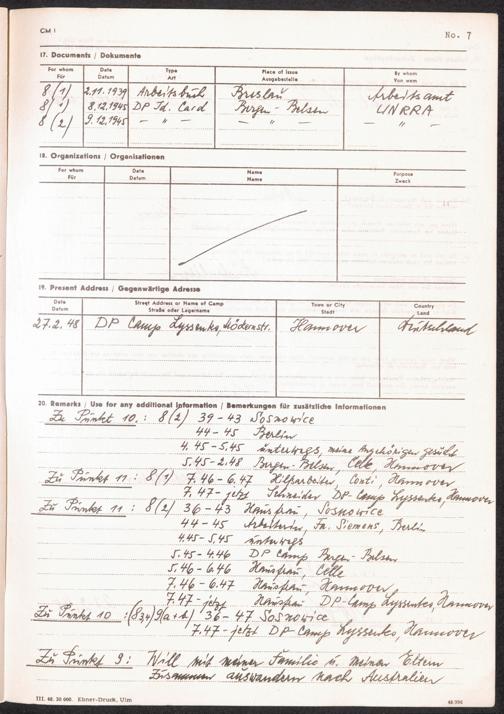 CM 1
No. 7
17. Documents / Dokumente
For whom Date Type Place of Issue By whom
Für Datum Art Ausgabestelle Von wem
8 (1) 2.11.1939 Arbeitsbuch Breslau Arbeitsamt
8 (1) 8.12.1945 DP Id. Card Bergen-Belsen UNRRA
8 (2) 9.12.1945 – " – – " – – " –
18. Organizations / Organisationen
For whom Date Name Purpose
Für Datum Name Zweck
19. Present Address / Gegenwärtige Adresse
Date Street Address or Name of Camp Town or City Country
Datum Straße oder Lagername Stadt Land
27.2.48 DP Camp Lyssenko, Hannover Deutschland
20. Remarks / Use for any additional information / Bemerkungen für zusätzliche Informationen
Zu Punkt 10.: 8(2) 39-43 Sosnowice
44-45 Berlin
4.45-5.45 unterwegs, meine Angehörigen gesucht
5.45-2.48 Bergen-Belsen, Celle, Hannover
Zu Punkt 11: 8(1) 7.46-6.47 Hilfsarbeiter, Conti, Hannover
7.47-jetzt Schneider DP-Camp Lyssenko, Hannover
Zu Punkt 11: 8(2) 36-43 Hausfrau, Sosnowice
44-45 Arbeiterin, Fa. Siemens, Berlin
4.45-5.45 unterwegs
5.45-4.46 DP Camp Bergen-Belsen
5.46-6.46 Hausfrau, Celle
7.46-6.47 Hausfrau, Hannover
7.47-jetzt Hausfrau DP-Camp Lyssenko, Hannover
Zu Punkt 10 : 36-47 Sosnowice
7.47-jetzt DP-Camp Lyssenko, Hannover
Zu Punkt 9: Will mit meiner Familie u. meinen Eltern
zusammen auswandern nach Australien
III. 48. 30 000. Ebner-Druck, Ulm